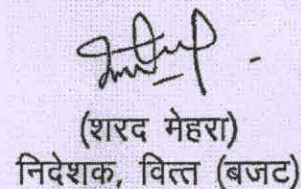 (शरद मेहरा)
निदेशक, वित्त (बजट)